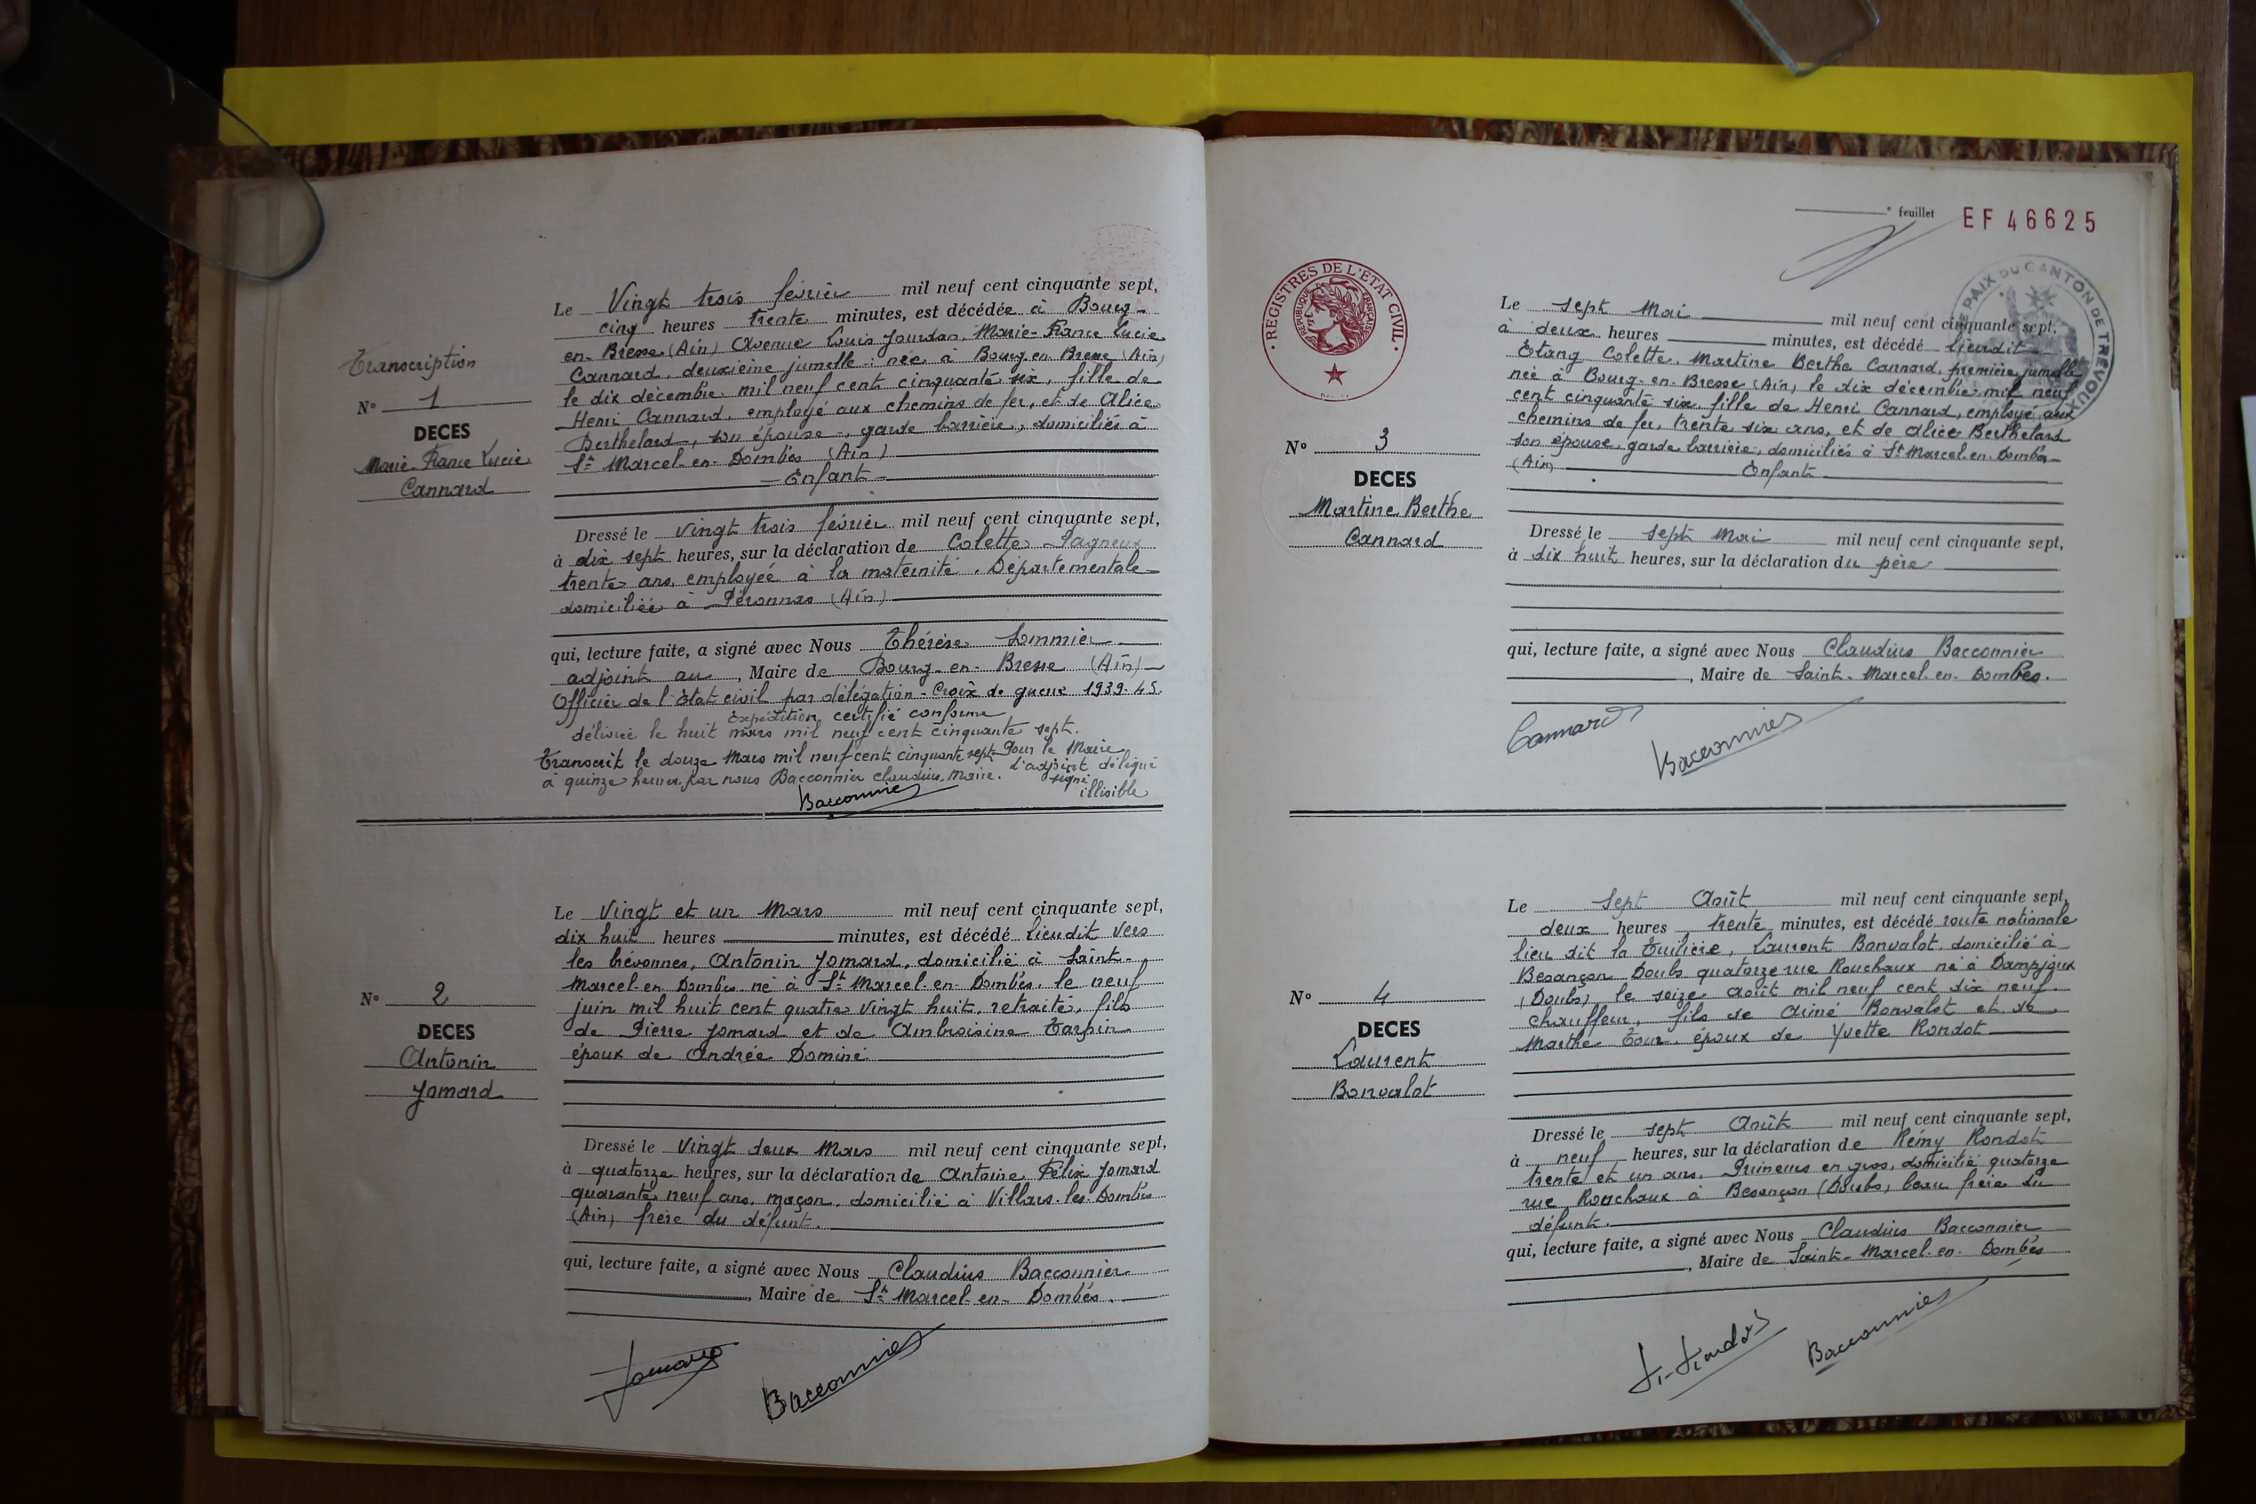 Transcription
N° 1
DECES
Marie-France Lucie
Cannard
Le Vingt trois février mil neuf cent cinquante sept,
cinq heures trente minutes, est décédée à Bourg-
en-Bresse (Ain) Avenue Louis Jourdan, Marie-France Lucie
Cannard, deuxième jumelle; née à Bourg-en-Bresse (Ain)
le dix décembre mil neuf cent cinquante six, fille de
Henri Cannard, employé aux chemins de fer, et de Alice
Berthelard, son épouse, garde barrière, domiciliés à
St Marcel-en-Dombes (Ain)
Enfant
Dressé le vingt trois février mil neuf cent cinquante sept,
à dix sept heures, sur la déclaration de Colette Pagneux
trente ans, employée à la maternité Départementale
domiciliée à Péronnas (Ain)
qui, lecture faite, a signé avec Nous Thérèse Sommier
adjoint au, Maire de Bourg-en-Bresse (Ain)
Officier de l'état civil par délégation - Croix de guerre 1939-45.
Expédition certifié conforme
délivrée le huit mars mil neuf cent cinquante sept.
Transcrit le douze Mars mil neuf cent cinquante sept Pour le Maire
à quinze heures par nous Bacconnier Claudius, Maire. l'adjoint délégué
signé
illisible
Bacconnier
N° 2
DECES
Antonin
Jomard
Le Vingt et un Mars mil neuf cent cinquante sept,
dix huit heures minutes, est décédé lieudit vers
les biévonnes, Antonin Jomard, domicilié à Saint-
Marcel-en-Dombes né à St Marcel-en-Dombes, le neuf
juin mil huit cent quatre vingt huit, retraité, fils
de Pierre Jomard et de Ambroisine Tarpin
époux de Andrée Dominé
Dressé le Vingt deux Mars mil neuf cent cinquante sept,
à quatorze heures, sur la déclaration de Antoine Félix Jomard
quarante neuf ans, maçon, domicilié à Villars-les-Dombes
(Ain) frère du défunt.
qui, lecture faite, a signé avec Nous Claudius Bacconnier
, Maire de St Marcel-en-Dombes.
Jomard
Bacconnier
° feuillet EF 46625
REGISTRES DE L'ETAT CIVIL
REPUBLIQUE FRANÇAISE
PAIX DU CANTON DE TREVOUX
N° 3
DECES
Martine Berthe
Cannard
Le sept Mai mil neuf cent cinquante sept,
à deux heures minutes, est décédé lieudit
Etang Colette, Martine Berthe Cannard, première jumelle
née à Bourg-en-Bresse (Ain) le dix décembre mil neuf
cent cinquante six, fille de Henri Cannard, employé aux
chemins de fer, trente six ans, et de Alice Berthelard
son épouse, garde barrière, domiciliés à St Marcel-en-Dombes
(Ain) Enfant
Dressé le sept Mai mil neuf cent cinquante sept,
à dix huit heures, sur la déclaration du père
qui, lecture faite, a signé avec Nous Claudius Bacconnier
, Maire de Saint-Marcel-en-Dombes.
Cannard
Bacconnier
N° 4
DECES
Laurent
Bonvalot
Le sept Août mil neuf cent cinquante sept,
deux heures trente minutes, est décédé route nationale
lieu dit la Tuilière, Laurent Bonvalot, domicilié à
Besançon Doubs quatorze rue Ronchaux né à Dampjoux
(Doubs) le seize août mil neuf cent dix neuf,
chauffeur, fils de Aimé Bonvalot et de
Marthe Tour, époux de Yvette Rondot
Dressé le sept Août mil neuf cent cinquante sept,
à neuf heures, sur la déclaration de Rémy Rondot
trente et un ans, Primeurs en gros, domicilié quatorze
rue Ronchaux à Besançon (Doubs) beau frère du
défunt.
qui, lecture faite, a signé avec Nous Claudius Bacconnier
, Maire de Saint-Marcel-en-Dombes
Bacconnier